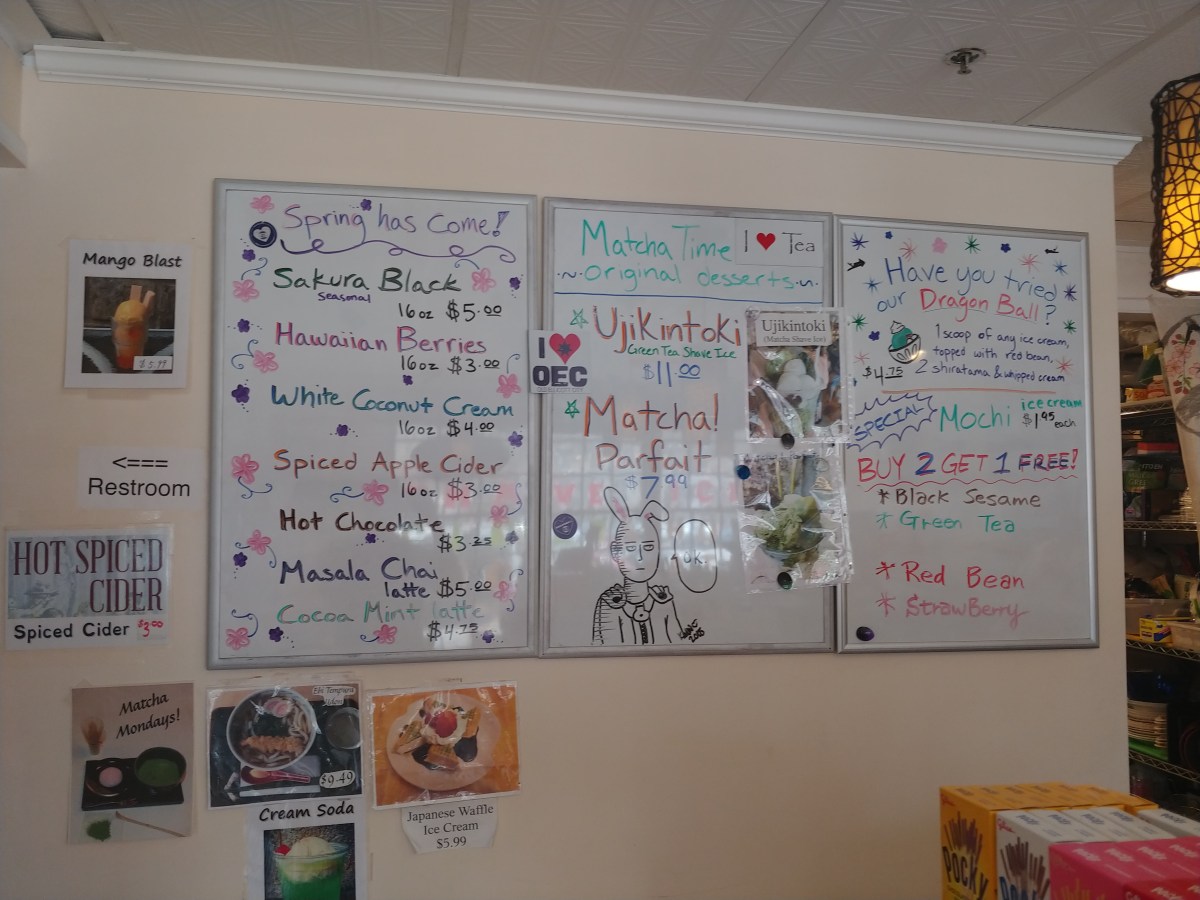 Mango Blast
$5.99
<===
Restroom
HOT SPICED
CIDER
Spiced Cider $3.00
Matcha
Mondays!
Spring has come!
Sakura Black
Seasonal
16oz $5.00
Hawaiian Berries
16oz $3.00
White Coconut Cream
16oz $4.00
Spiced Apple Cider
16oz $3.00
Hot Chocolate
$3.25
Masala Chai
latte $5.00
Cocoa Mint latte
$4.75
Ebi Tempura
Udon
$9.49
Cream Soda
Japanese Waffle
Ice Cream
$5.99
Matcha Time
~Original desserts~
I ♥ Tea
Ujikintoki
Green Tea Shave Ice
$11.00
I ♥
OEC
Ujikintoki
(Matcha Shave Ice)
Matcha!
Parfait
$7.99
OK.
2015
Have you tried
our Dragon Ball?
1 scoop of any ice cream,
topped with red bean,
2 shiratama & whipped cream
$4.75
SPECIAL
Mochi ice cream
$1.95 each
BUY 2 GET 1 FREE!
*Black Sesame
*Green Tea
*Red Bean
*Strawberry
POCKY